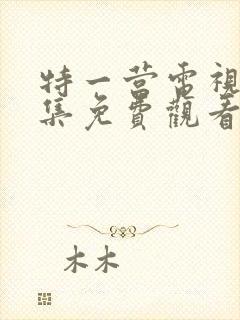 特一营電視
集免費觀看
木木